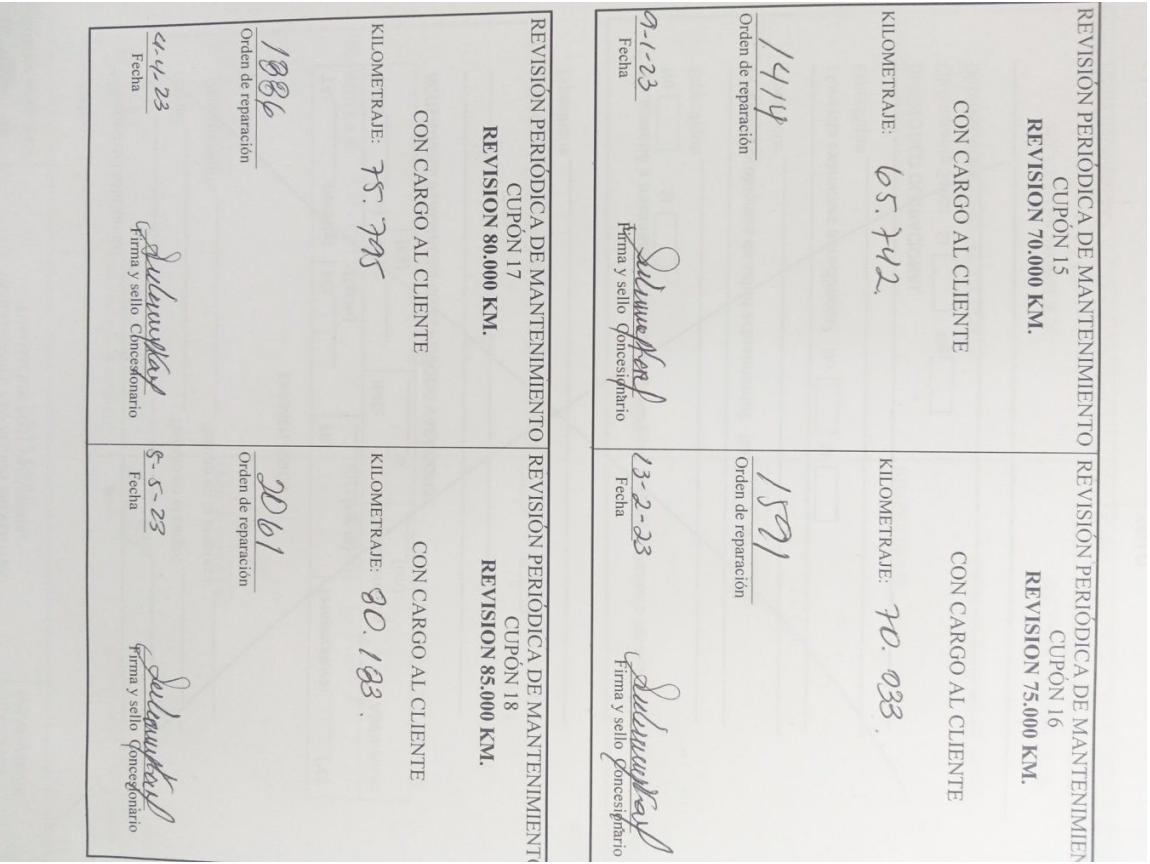 REVISIÓN PERIÓDICA DE MANTENIMIENTO
CUPÓN 15
REVISION 70.000 KM.
CON CARGO AL CLIENTE
KILOMETRAJE: 65.742.
1414
Orden de reparación
9-1-23
Fecha
Firma y sello Concesionario
REVISIÓN PERIÓDICA DE MANTENIMIEN
CUPÓN 16
REVISION 75.000 KM.
CON CARGO AL CLIENTE
KILOMETRAJE: 70.033.
1591
Orden de reparación
13-2-23
Fecha
Firma y sello Concesionario
REVISIÓN PERIÓDICA DE MANTENIMIENTO
CUPÓN 17
REVISION 80.000 KM.
CON CARGO AL CLIENTE
KILOMETRAJE: 75.795
1886
Orden de reparación
4-4-23
Fecha
Firma y sello Concesionario
REVISIÓN PERIÓDICA DE MANTENIMIENTO
CUPÓN 18
REVISION 85.000 KM.
CON CARGO AL CLIENTE
KILOMETRAJE: 80.183.
2061
Orden de reparación
8-5-23
Fecha
Firma y sello Concesionario